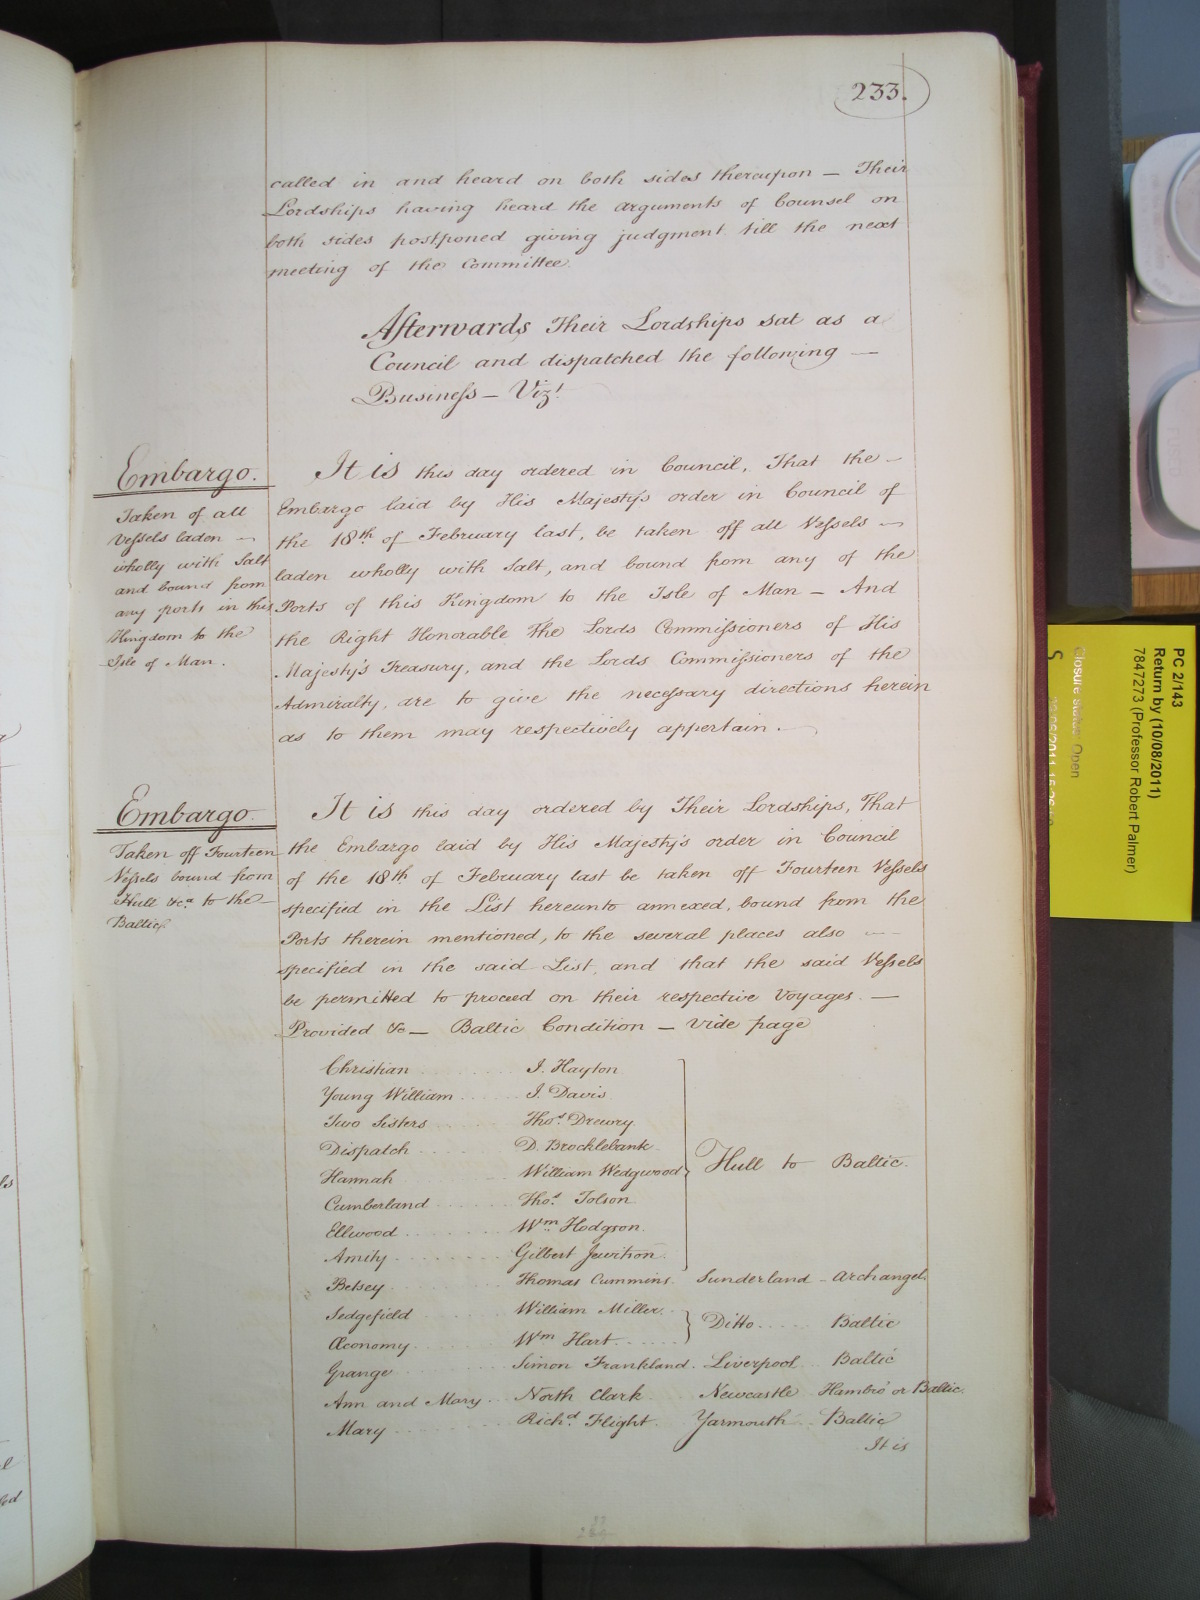 233.
called in and heard on both sides thereupon — Their
Lordships having heard the arguments of Counsel on
both sides postponed giving judgment till the next
meeting of the Committee.
Afterwards Their Lordships sat as a
Council and dispatched the following —
Business — Vizt
Embargo.
Taken of all
Vessels laden —
wholly with Salt
and bound from
any ports in this
Kingdom to the
Isle of Man.
It is this day ordered in Council, That the —
Embargo laid by His Majesty's order in Council of
the 18th of February last, be taken off all Vessels —
laden wholly with Salt, and bound from any of the
Ports of this Kingdom to the Isle of Man — And
the Right Honorable the Lords Commissioners of His
Majesty's Treasury, and the Lords Commissioners of the
Admiralty, are to give the necessary directions herein
as to them may respectively appertain. —
Embargo.
Taken off Fourteen
Vessels bound from
Hull &ca to the —
Baltic.
It is this day ordered by Their Lordships, That
the Embargo laid by His Majesty's order in Council
of the 18th of February last be taken off Fourteen Vessels
specified in the List hereunto annexed, bound from the
Ports therein mentioned, to the several places also —
specified in the said List, and that the said Vessels
be permitted to proceed on their respective Voyages. —
Provided &c — Baltic Condition — Vide page
Christian ........ J. Hayton
Young William ...... J. Davis
Two Sisters ...... Thos. Drewry
Dispatch ...... D. Brocklebank
Hannah .. William Wedgwood } Hull to Baltic.
Cumberland ...... Thos. Tolson
Ellwood ........ Wm. Hodgson
Amity ........ Gilbert Jewitson
Betsey ........ Thomas Cummins. Sunderland - Archangel.
Sedgefield ...... William Miller.. } Ditto .... Baltic
Œconomy ...... Wm Hart ......
Grange ...... Simon Frankland. Liverpool .. Baltic
Ann and Mary .. North Clark Newcastle Hambro' or Baltic.
Mary ........ Richd. Flight. Yarmouth .. Baltic
It is
PC 2/143
Return by (10/08/2011)
7847273 (Professor Robert Palmer)
Closure status: Open
S